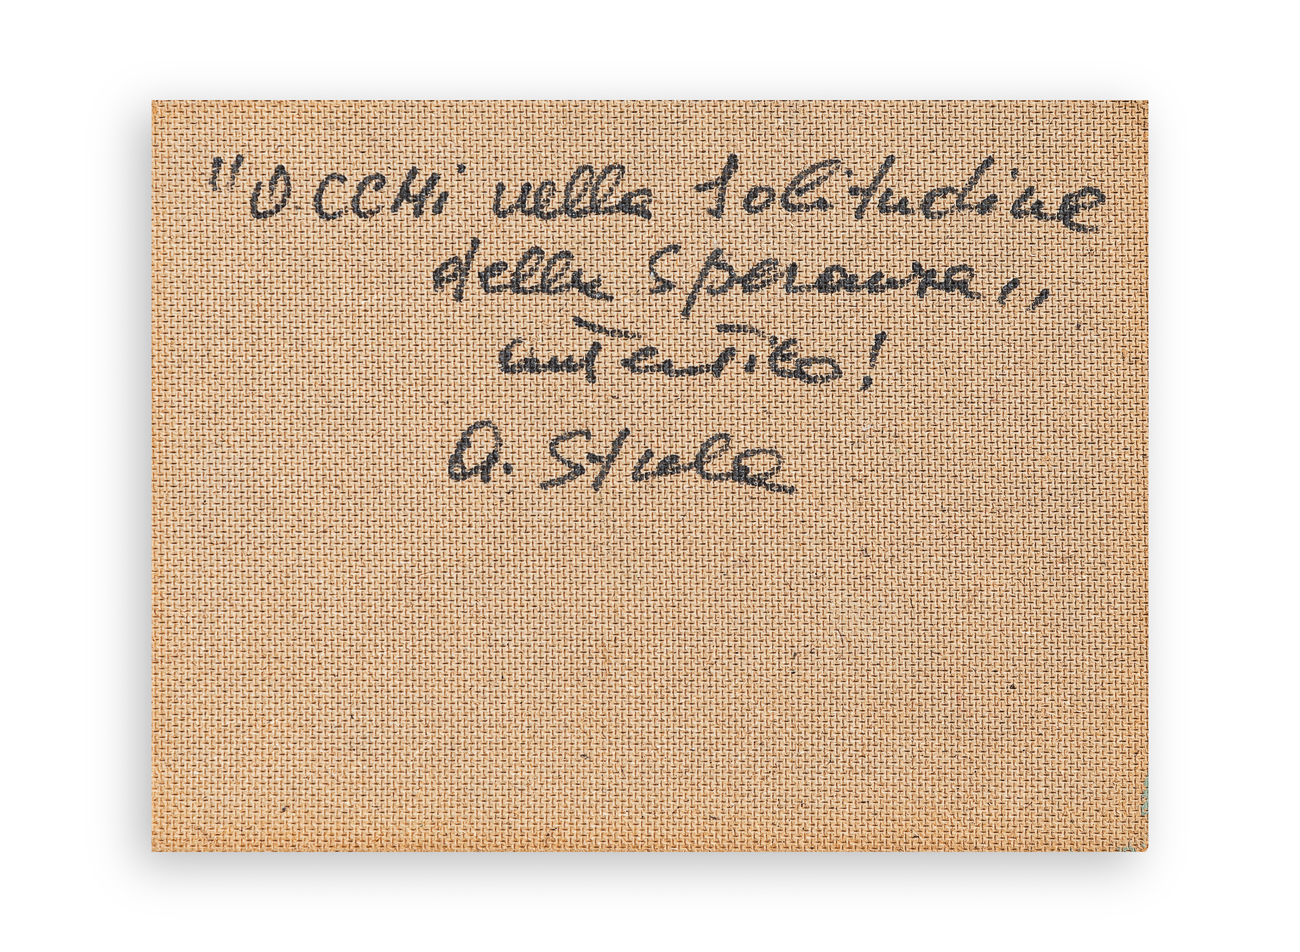 "OCCHi nella Solitudine
della Speranza"
autentico!
A. Strula